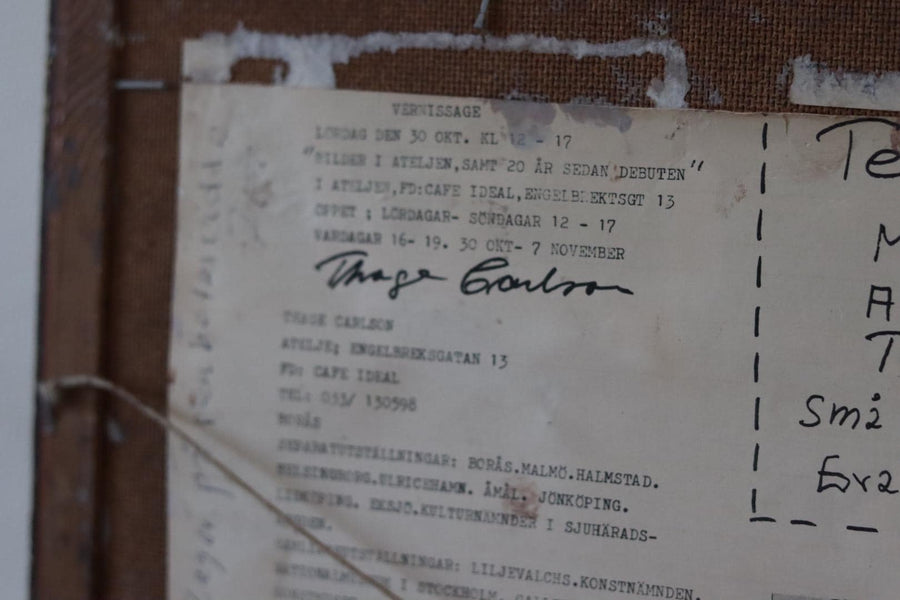 VERNISSAGE
LÖRDAG DEN 30 OKT. KL 12 - 17
"BILDER I ATELJEN,SAMT 20 ÅR SEDAN DEBUTEN"
I ATELJEN,FD:CAFE IDEAL,ENGELBREKTSGT 13
ÖPPET ; LÖRDAGAR- SÖNDAGAR 12 - 17
VARDAGAR 16- 19. 30 OKT- 7 NOVEMBER
Thage Carlson
THAGE CARLSON
ATELJE; ENGELBREKSGATAN 13
FD: CAFE IDEAL
TEL: 033/ 130598
BORÅS
SEPARATUTSTÄLLNINGAR: BORÅS.MALMÖ.HALMSTAD.
HELSINGBORG.ULRICEHAMN. ÅMÅL. JÖNKÖPING.
LIDKÖPING. EKSJÖ.KULTURNÄMNDER I SJUHÄRADS-
BYGDEN.
SAMLINGSUTSTÄLLNINGAR: LILJEVALCHS.KONSTNÄMNDEN.
NATIONALMUSEUM I STOCKHOLM.
Te
M
A
T
Små
Eva